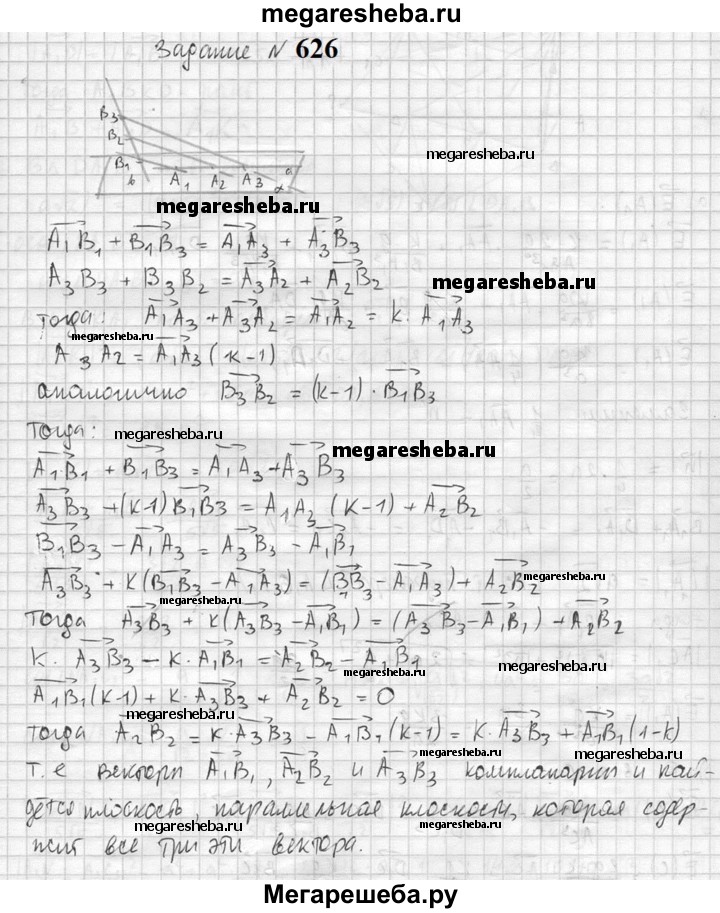 megaresheba.ru
Задание № 626
B3
B2
B1
b
A1 A2 A3 a
α
megaresheba.ru
megaresheba.ru
A₁B₁ + B₁B₃ = A₁A₃ + A₃B₃
A₃B₃ + B₃B₂ = A₃A₂ + A₂B₂
megaresheba.ru
тогда: A₁A₃ + A₃A₂ = A₁A₂ = k · A₁A₃
megaresheba.ru
A₃A₂ = A₁A₃ (k-1)
аналогично B₃B₂ = (k-1) · B₁B₃
Тогда:
megaresheba.ru
megaresheba.ru
A₁B₁ + B₁B₃ = A₁A₃ + A₃B₃
A₃B₃ + (k-1) B₁B₃ = A₁A₃ (k-1) + A₂B₂
B₁B₃ - A₁A₃ = A₃B₃ - A₁B₁
A₃B₃ + k(B₁B₃ - A₁A₃) = (B₁B₃ - A₁A₃) + A₂B₂
megaresheba.ru
megaresheba.ru
Тогда A₃B₃ + k(A₃B₃ - A₁B₁) = (A₃B₃ - A₁B₁) + A₂B₂
k · A₃B₃ - k · A₁B₁ = A₂B₂ - A₁B₁
megaresheba.ru
megaresheba.ru
A₁B₁(k-1) + k · A₃B₃ + A₂B₂ = 0
megaresheba.ru
тогда A₂B₂ = k · A₃B₃ - A₁B₁(k-1) = k · A₃B₃ + A₁B₁(1-k)
megaresheba.ru
megaresheba.ru
т.е векторы A₁B₁, A₂B₂ и A₃B₃ компланарны и най-
дётся плоскость, параллельная плоскости, которая содер-
megaresheba.ru
megaresheba.ru
жит все три эти вектора.
Мегарешеба.ру